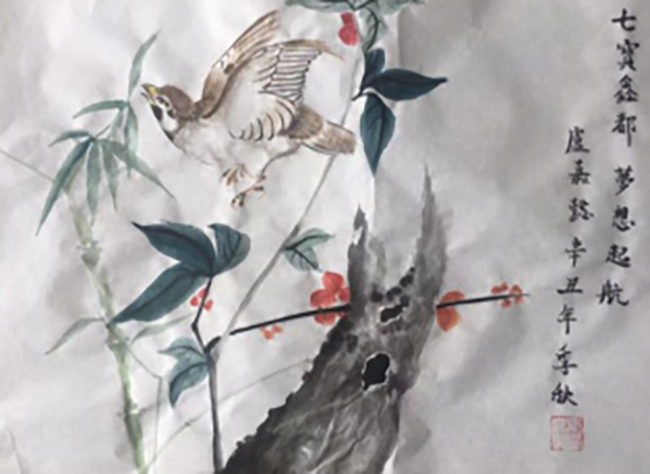 七寳鑫都 夢想起航
盧嘉懿辛丑年季秋